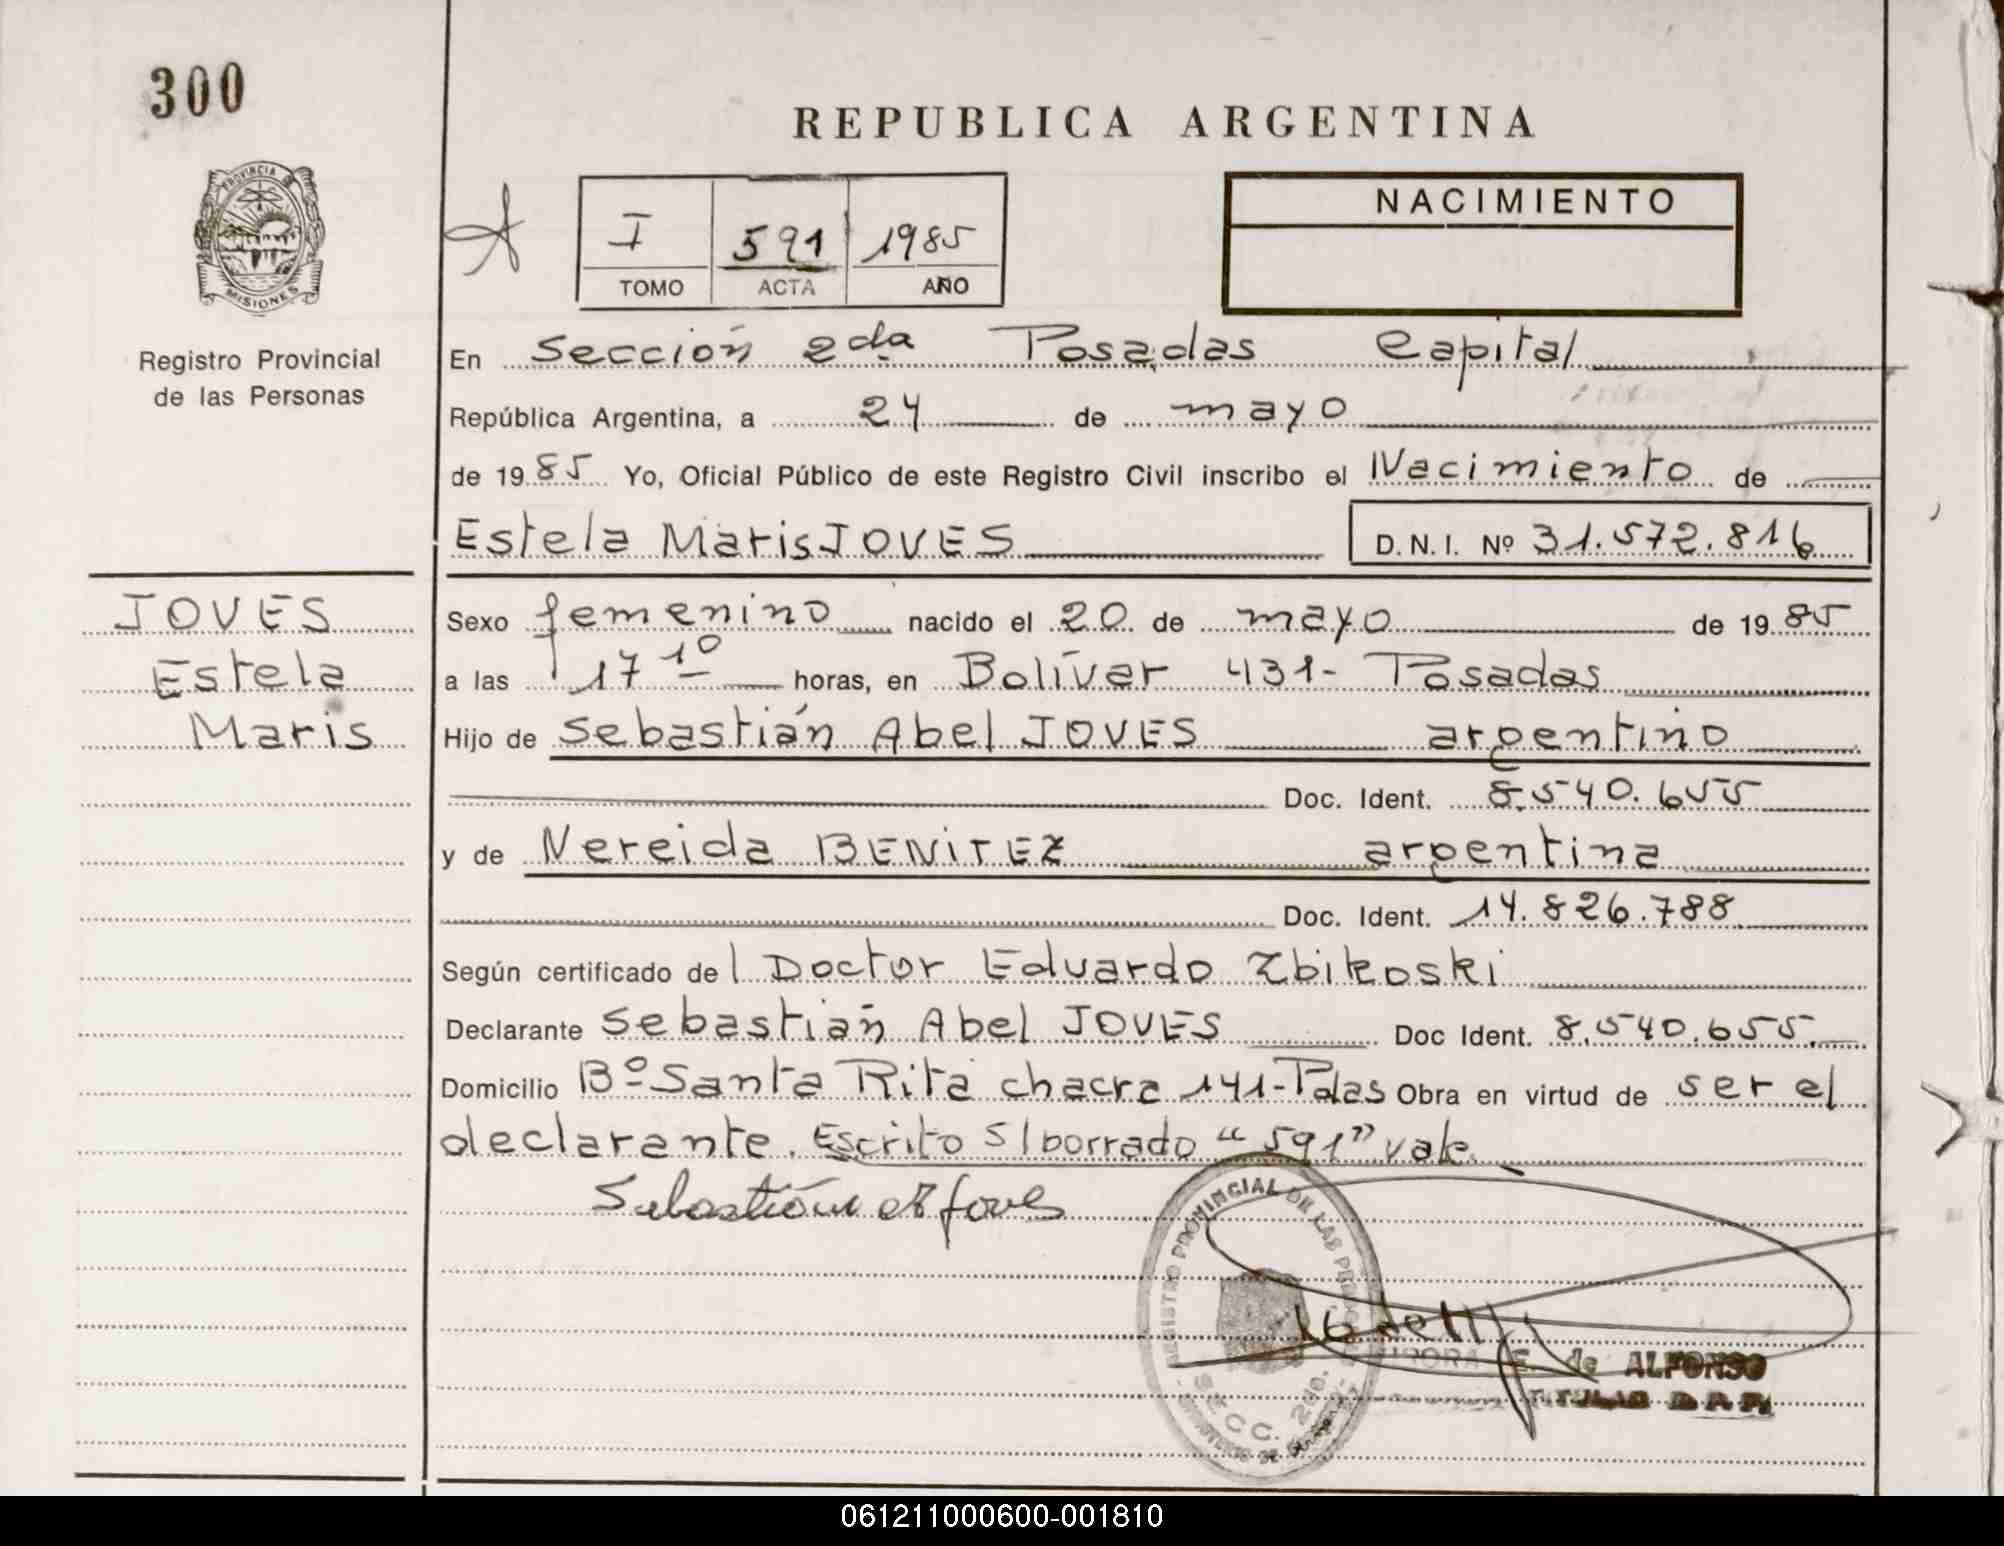 300
REPUBLICA ARGENTINA
PROVINCIA
MISIONES
NACIMIENTO
I 591 1985
TOMO ACTA AÑO
Registro Provincial
de las Personas
En Sección 2da Posadas Capital
República Argentina, a 24 de mayo
de 1985 Yo, Oficial Público de este Registro Civil inscribo el Nacimiento de
Estela Maris JOVES D.N.I. Nº 31.572.816
JOVES
Estela
Maris
Sexo femenino nacido el 20 de mayo de 1985
a las 17 10 horas, en Bolívar 431- Posadas
Hijo de Sebastián Abel JOVES argentino
Doc. Ident. 8.540.655
y de Nereida BENITEZ argentina
Doc. Ident. 14.826.788
Según certificado del Doctor Eduardo Zbikoski
Declarante Sebastián Abel JOVES Doc Ident. 8.540.655.
Domicilio Bº Santa Rita chacra 141-Pdas Obra en virtud de ser el
declarante. Escrito S/borrado "591" vale.
REGISTRO PROVINCIAL DE LAS
SECC. 2da.
E. de ALFONSO
TITULAR
061211000600-001810